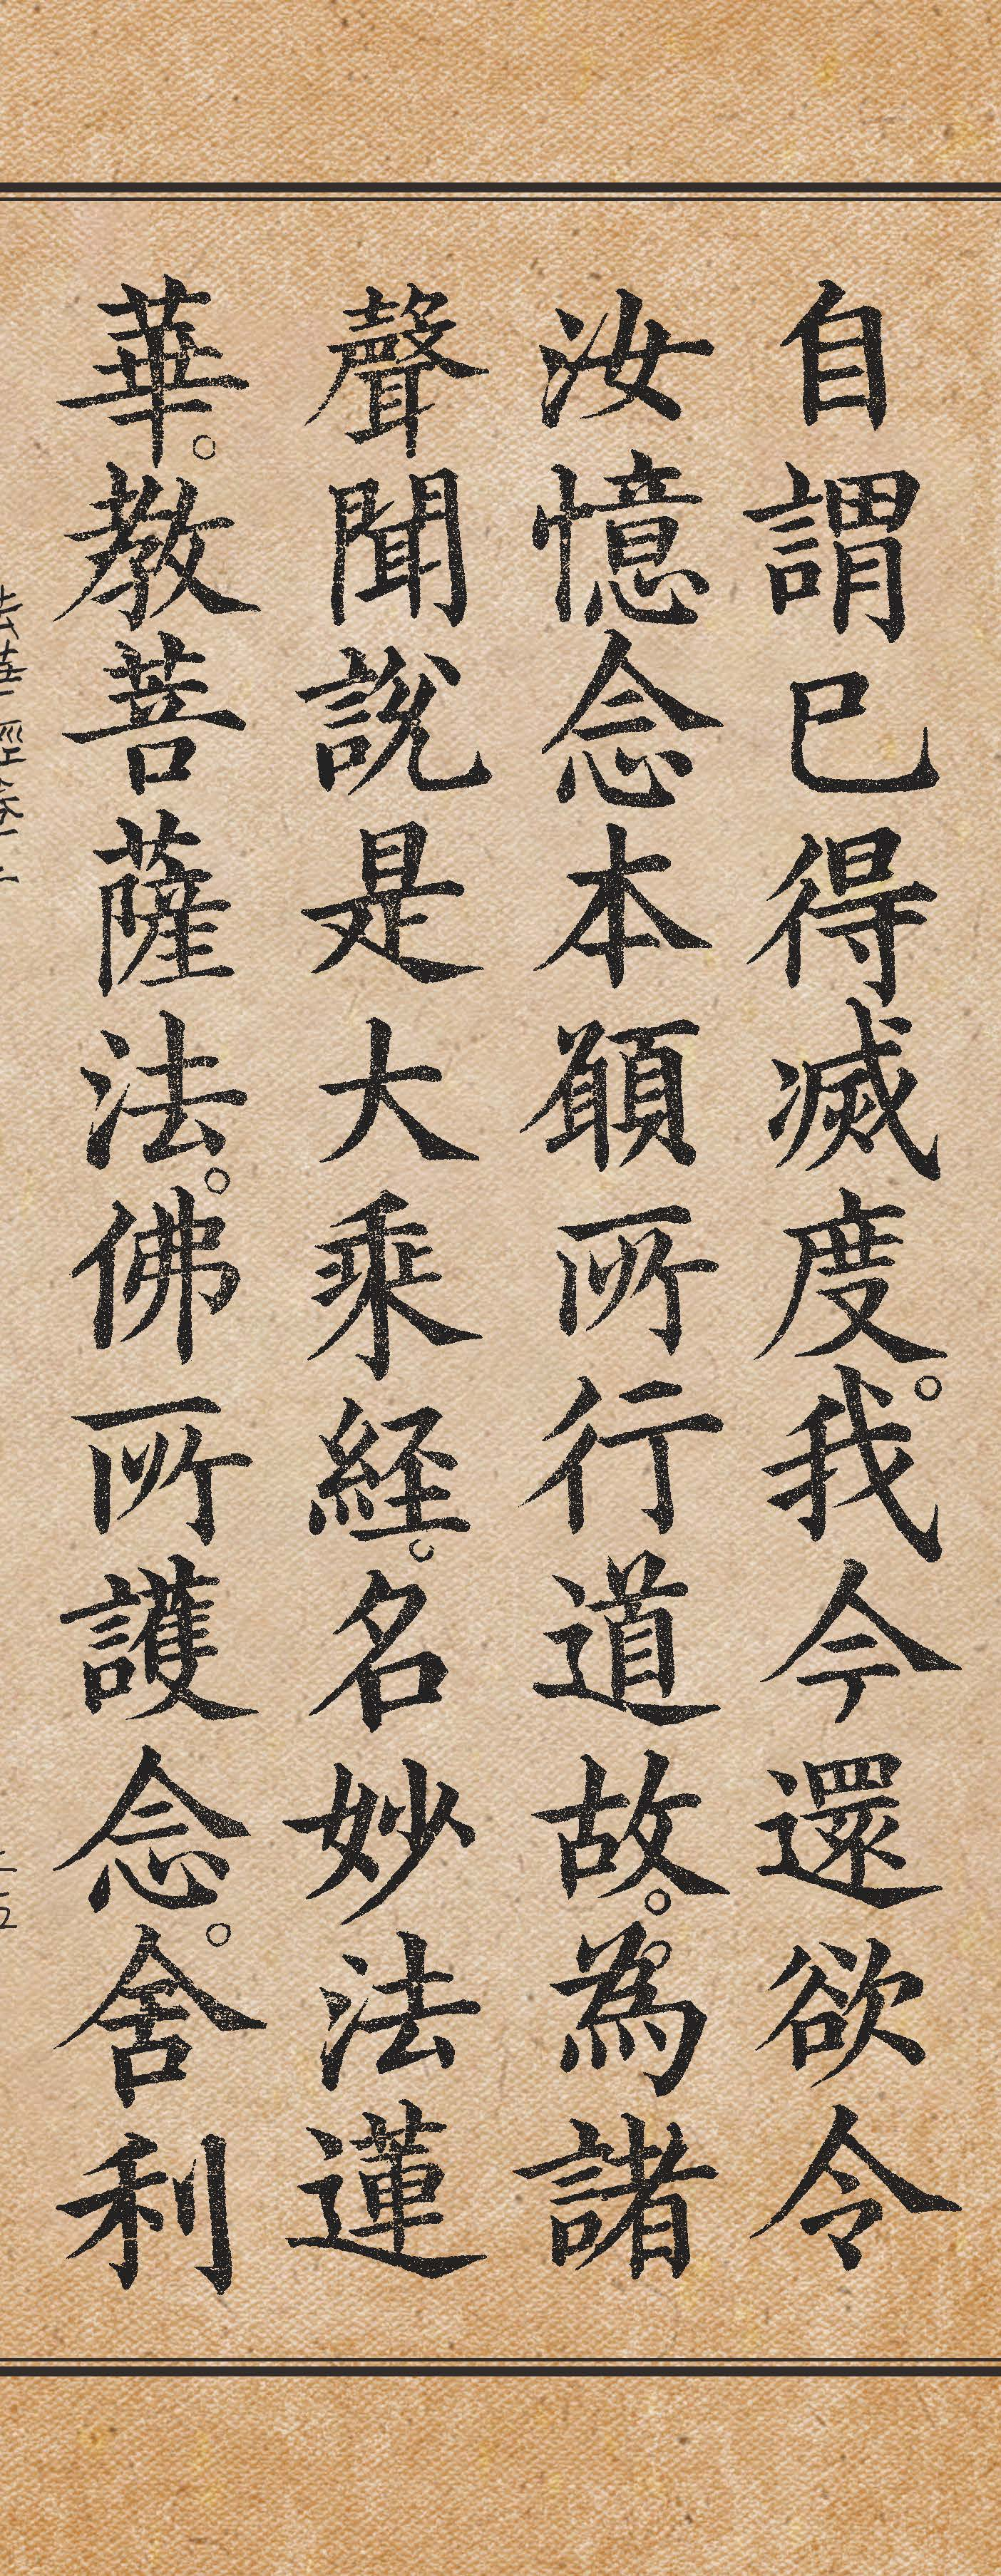 自謂已得滅度。我今還欲令
汝憶念本願所行道故。為諸
聲聞說是大乘経。名妙法蓮
華。教菩薩法。佛所護念。舍利
法華經卷二
二五